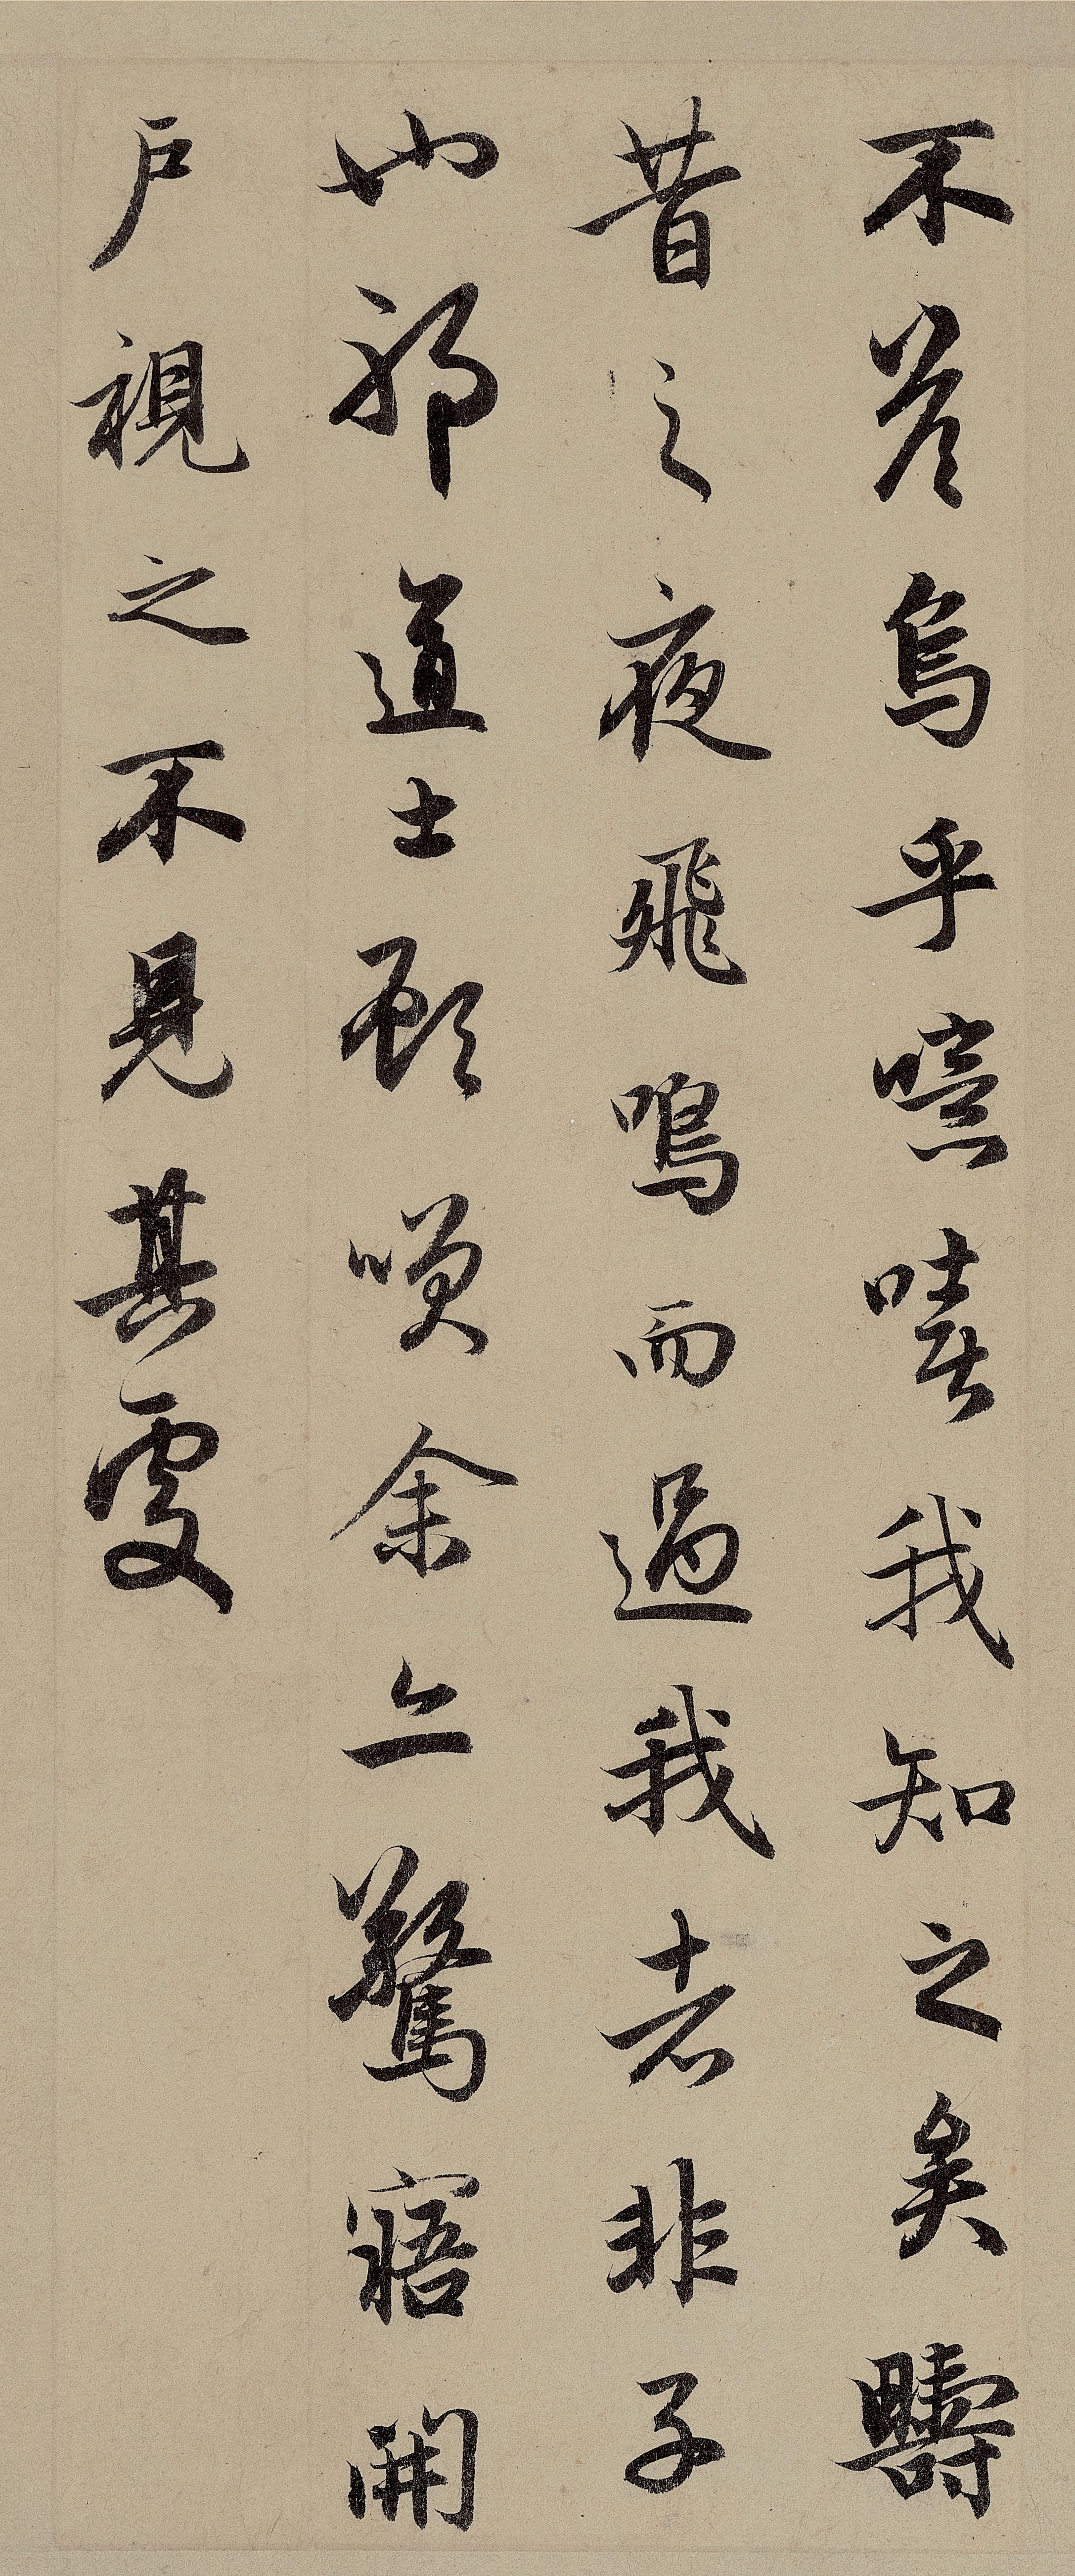 不答烏乎噫嘻我知之矣疇
昔之夜飛鳴而過我者非子
也邪道士顧笑余亦驚寤開
户視之不見其處